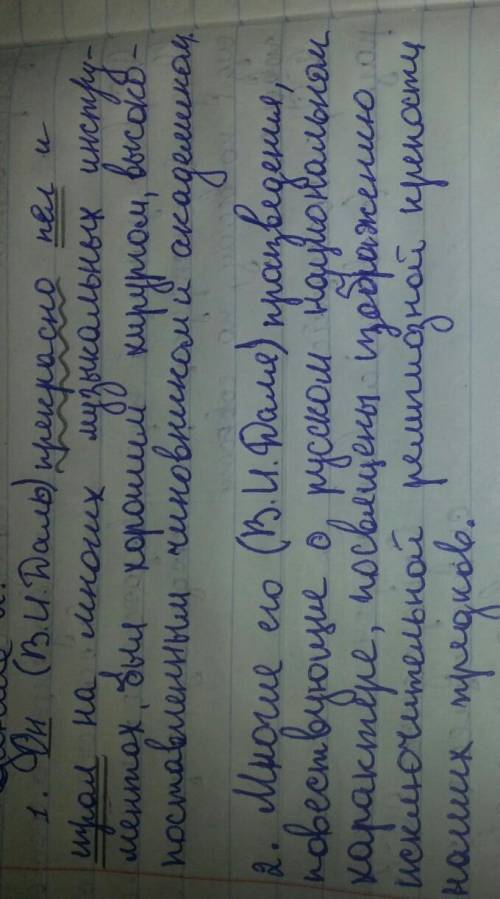 1. Он (В.И.Даль) прекрасно пел и
играл на многих музыкальных инстру-
ментах, был хорошим хирургом, высоко-
поставленным чиновником и академиком.
2. Многие его (В.И.Даля) произведения,
повествующие о русском национальном
характере, посвящены изображению
исключительной религиозной крепости
наших предков.